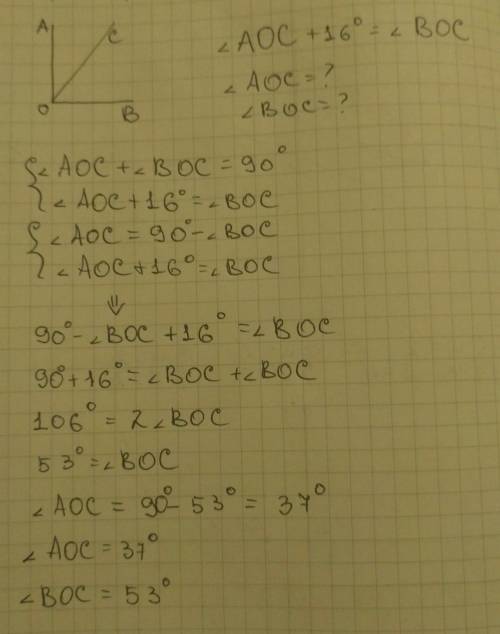 A
C
O
B
∠AOC + 16° = ∠BOC
∠AOC = ?
∠BOC = ?
{∠AOC + ∠BOC = 90°
∠AOC + 16° = ∠BOC
{∠AOC = 90° - ∠BOC
∠AOC + 16° = ∠BOC
⇓
90° - ∠BOC + 16° = ∠BOC
90° + 16° = ∠BOC + ∠BOC
106° = 2∠BOC
53° = ∠BOC
∠AOC = 90° - 53° = 37°
∠AOC = 37°
∠BOC = 53°